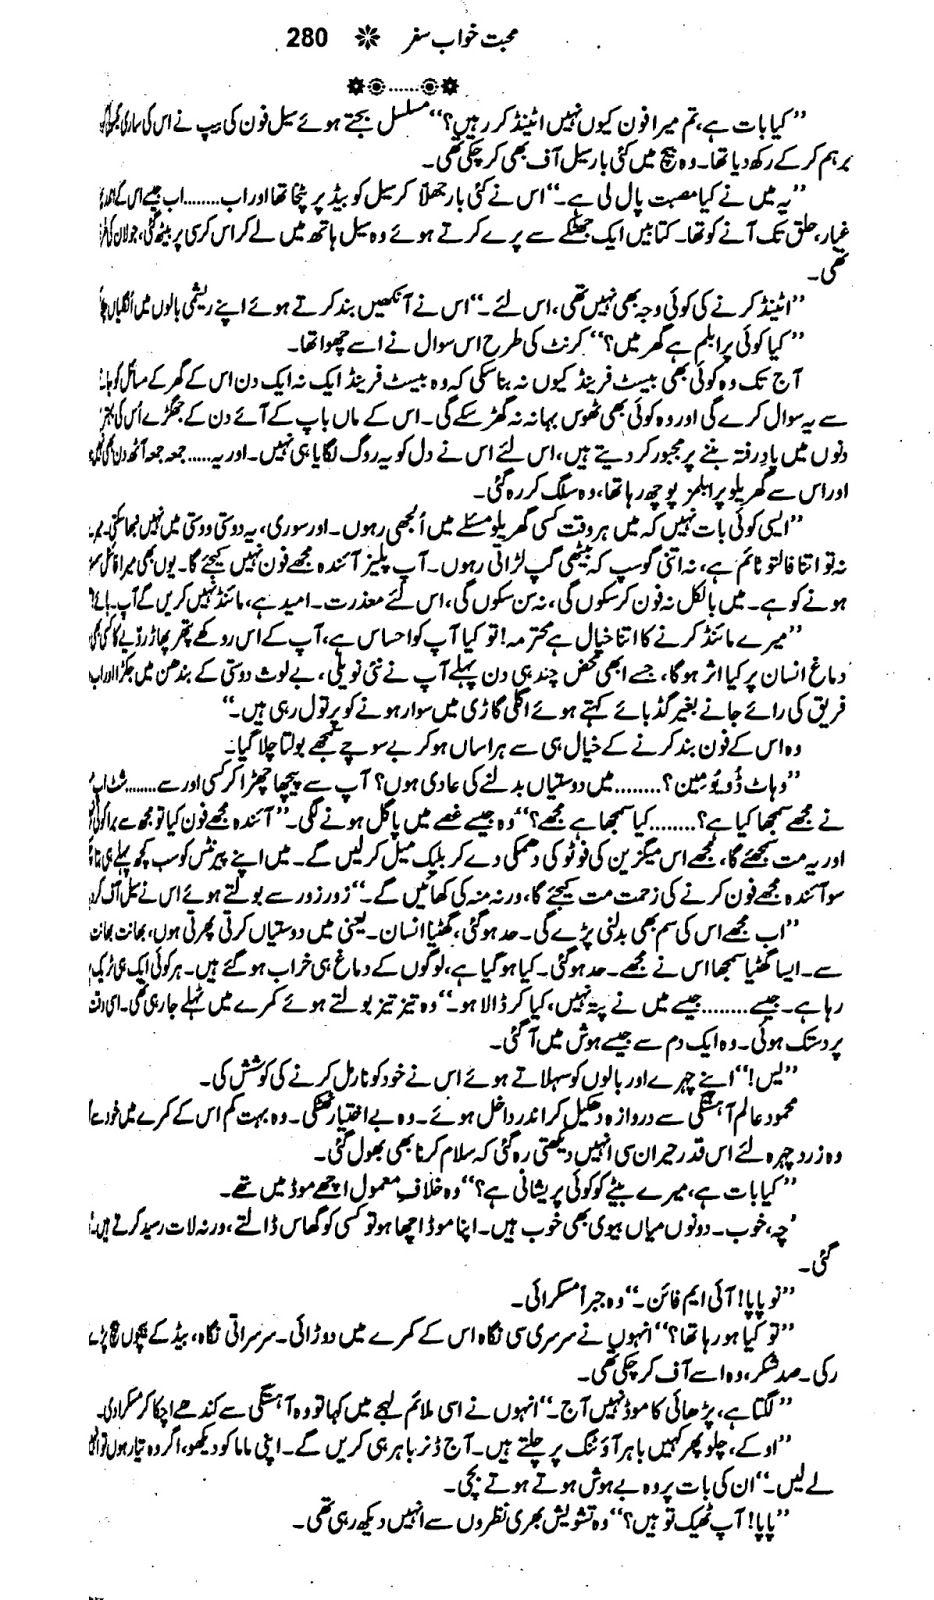 محبت خواب سفر 280
”کیا بات ہے، تم میرا فون کیوں نہیں اٹینڈ کر رہیں؟“ مسلسل بجتے ہوئے سیل فون کی بیپ نے اس کی ساری
برہم کر کے رکھ دیا تھا۔ وہ بیچ میں کئی بار سیل آف بھی کر چکی تھی۔
”یہ میں نے کیا مصیبت پال لی ہے۔“ اس نے کئی بار جھلا کر سیل کو بیڈ پر پٹخا تھا اور اب........ اب جیسے اس کے اندر
غبار، حلق تک آنے کو تھا۔ کتابیں ایک جھٹکے سے پرے کرتے ہوئے وہ سیل ہاتھ میں لے کر اس کرسی پر بیٹھ گئی، جو لان کی طرف
تھی۔
”اٹینڈ کرنے کی کوئی وجہ بھی نہیں تھی، اس لئے۔“ اس نے آنکھیں بند کرتے ہوئے اپنے ریشمی بالوں میں انگلیاں
”کیا کوئی پرابلم ہے گھر میں؟“ کرنٹ کی طرح اس سوال نے اسے چھوا تھا۔
آج تک وہ کوئی بھی بیسٹ فرینڈ کیوں نہ بنا سکی کہ وہ بیسٹ فرینڈ ایک نہ ایک دن اس کے گھر کے مسائل کو
سے یہ سوال کرے گی اور وہ کوئی بھی ٹھوس بہانہ نہ گھڑ سکے گی۔ اس کے ماں باپ کے آئے دن کے جھگڑے اُس کی بہتر
دنوں میں یادِ رفتہ بننے پر مجبور کر دیتے ہیں، اس لئے اس نے دل کو یہ روگ لگایا ہی نہیں۔ اور یہ..... جمعہ جمعہ آٹھ دن بھی نہیں
اور اس سے گھریلو پرابلمز پوچھ رہا تھا، وہ سلگ کر رہ گئی۔
”ایسی کوئی بات نہیں کہ میں ہر وقت کسی گھریلو مسئلے میں اُلجھی رہوں۔ اور سوری، یہ دوستی ووستی میں نہیں نبھا سکتی۔
نہ تو اتنا فالتو ٹائم ہے، نہ اتنی گوسپ کہ بیٹھی گپ لڑاتی رہوں۔ آپ پلیز آئندہ مجھے فون نہیں کیجئے گا۔ یوں بھی میرا فائنل
ہونے کو ہے۔ میں بالکل نہ فون کر سکوں گی، نہ سن سکوں گی، اس لئے معذرت۔ امید ہے، مائنڈ نہیں کریں گے آپ۔
”میرے مائنڈ کرنے کا اتنا خیال ہے محترمہ! تو کیا آپ کو احساس ہے، آپ کے اس روکھے پتھر پھاڑ رویے کا کسی
دماغ انسان پر کیا اثر ہوگا، جسے ابھی محض چند ہی دن پہلے آپ نے نئی نویلی، بے لوث دوستی کے بندھن میں جکڑا اور اب
فریق کی رائے جانے بغیر گڈ بائے کہتے ہوئے اگلی گاڑی میں سوار ہونے کو پر تول رہی ہیں۔“
وہ اس کے فون بند کرنے کے خیال ہی سے ہراساں ہو کر بے سوچے سمجھے بولتا چلا گیا۔
”وہاٹ ڈو یُو مین؟........ میں دوستیاں بدلنے کی عادی ہوں؟ آپ سے پیچھا چھڑا کر کسی اور سے........ شٹ اپ
نے مجھے سمجھا کیا ہے؟........ کیا سمجھا ہے مجھے؟“ وہ جیسے غصے میں پاگل ہونے لگی۔ ”آئندہ مجھے فون کیا تو مجھ سے برا کوئی
اور یہ مت سمجھئے گا، مجھے اس میگزین کی فوٹو کی دھمکی دے کر بلیک میل کر لیں گے۔ میں اپنے پیرنٹس کو سب کچھ پہلے ہی بتا
سو آئندہ مجھے فون کرنے کی زحمت مت کیجئے گا، ورنہ منہ کی کھائیں گے۔“ زور زور سے بولتے ہوئے اس نے سیل آف کر
”اب مجھے اس کی سم بھی بدلنی پڑے گی۔ حد ہو گئی، گھٹیا انسان۔ یعنی میں دوستیاں کرتی پھرتی ہوں، بھانت بھانت
سے۔ ایسا گھٹیا سمجھا اس نے مجھے۔ حد ہو گئی۔ کیا ہو گیا ہے، لوگوں کے دماغ ہی خراب ہو گئے ہیں۔ ہر کوئی ایک ہی ٹریک
رہا ہے۔ جیسے........ جیسے میں نے پتہ نہیں، کیا کر ڈالا ہو۔“ وہ تیز تیز بولتے ہوئے کمرے میں ٹہلے جا رہی تھی۔ اسی وقت
پر دستک ہوئی۔ وہ ایک دم سے جیسے ہوش میں آ گئی۔
”یس!“ اپنے چہرے اور بالوں کو سہلاتے ہوئے اس نے خود کو نارمل کرنے کی کوشش کی۔
محمود عالم آہستگی سے دروازہ دھکیل کر اندر داخل ہوئے۔ وہ بے اختیار ٹھٹکی۔ وہ بہت کم اس کے کمرے میں خود
وہ زرد چہرہ لئے اس قدر حیران سی انہیں دیکھتی رہ گئی کہ سلام کرنا بھی بھول گئی۔
”کیا بات ہے، میرے بیٹے کو کوئی پریشانی ہے؟“ وہ خلافِ معمول اچھے موڈ میں تھے۔
’چہ، خوب۔ دونوں میاں بیوی بھی خوب ہیں۔ اپنا موڈ اچھا ہو تو کسی کو گھاس ڈالتے، ورنہ لات رسید کرتے ہیں۔‘
گئی۔
”نو پاپا! آئی ایم فائن۔“ وہ جبراً مسکرائی۔
”تو کیا ہو رہا تھا؟“ انہوں نے سرسری سی نگاہ اس کے کمرے میں دوڑائی۔ سرسراتی نگاہ، بیڈ کے بیچوں بیچ پڑے
رکی۔ صد شکر، وہ اسے آف کر چکی تھی۔
”لگتا ہے، پڑھائی کا موڈ نہیں آج۔“ انہوں نے اسی ملائم لہجے میں کہا تو وہ آہستگی سے کندھے اچکا کر مسکرا دی۔
”اوکے، چلو پھر کہیں باہر آؤٹنگ پر چلتے ہیں۔ آج ڈنر باہر ہی کریں گے۔ اپنی ماما کو دیکھو، اگر وہ تیار ہوں تو انہیں
لے لیں۔“ ان کی بات پر وہ بے ہوش ہوتے ہوتے بچی۔
”پاپا! آپ ٹھیک تو ہیں؟“ وہ تشویش بھری نظروں سے انہیں دیکھ رہی تھی۔